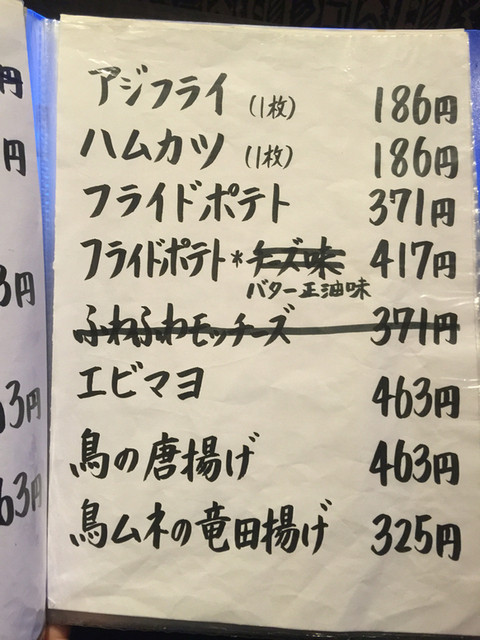 円
円
3円
63円
63円
アジフライ (1枚) 186円
ハムカツ (1枚) 186円
フライドポテト 371円
フライドポテト*チーズ味 417円
バター正油味
ふわふわモッチーズ 371円
エビマヨ 463円
鳥の唐揚げ 463円
鳥ムネの竜田揚げ 325円